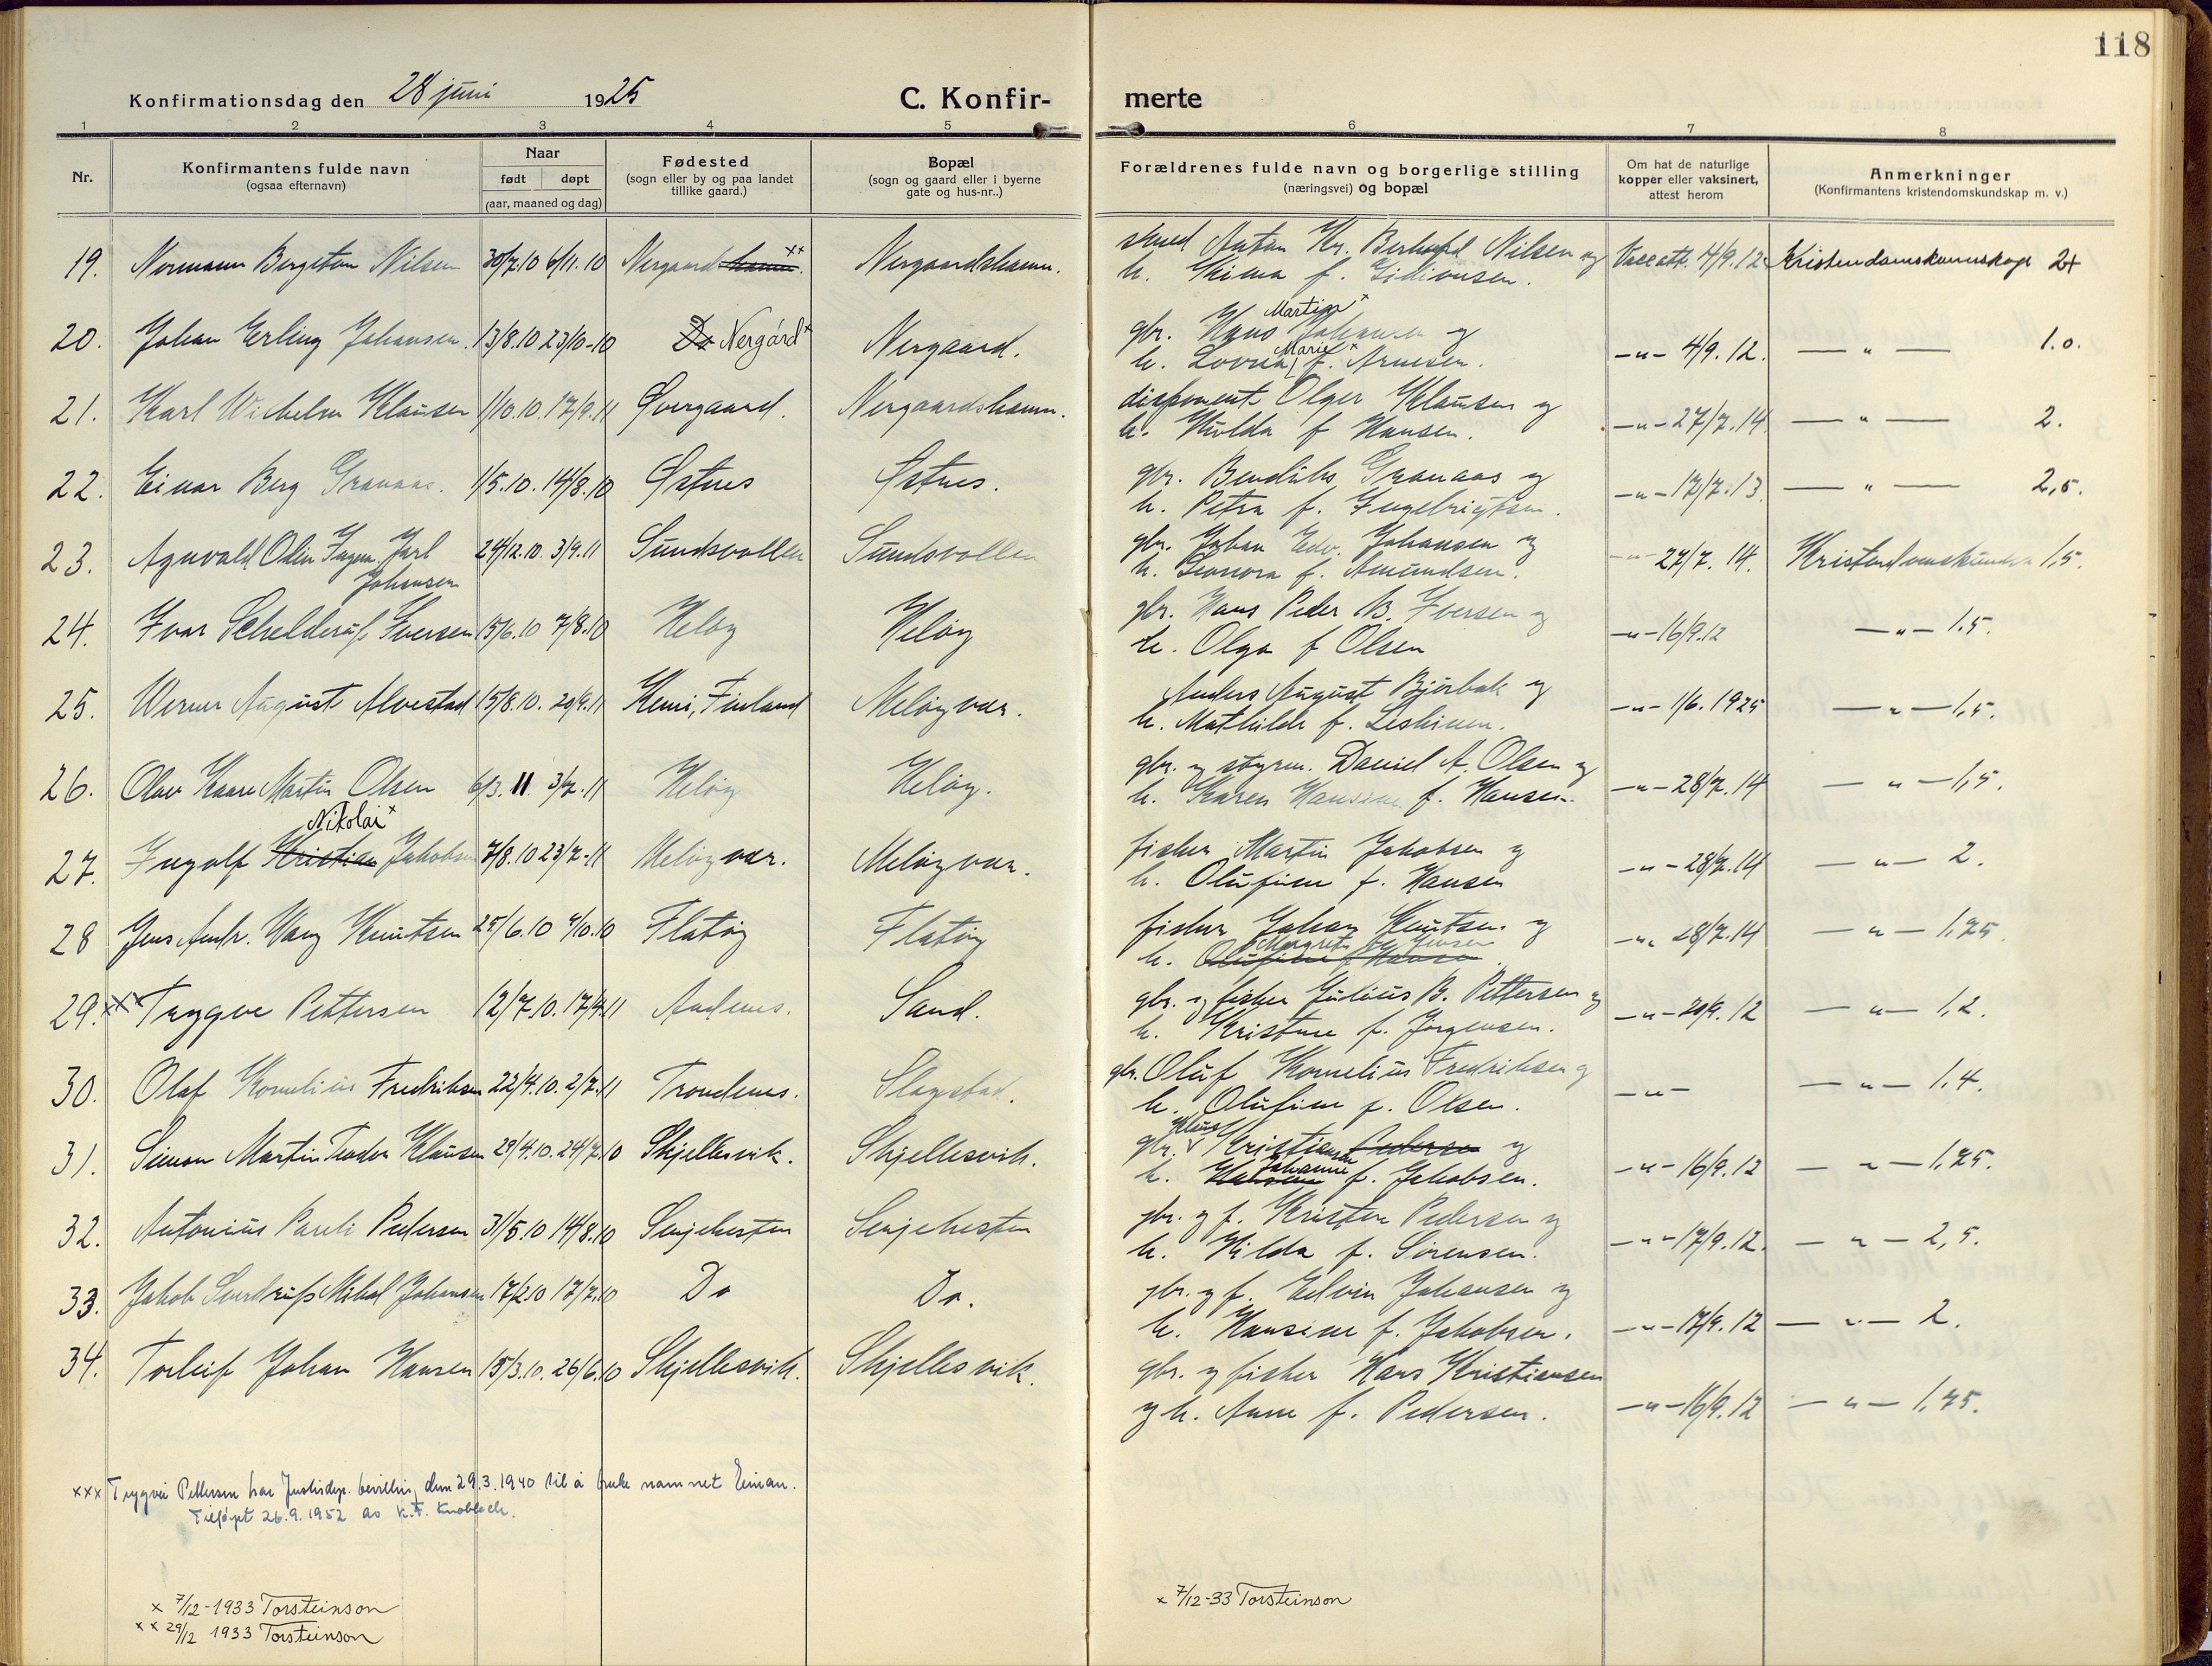 118
Konfirmationsdag den 28 juni 1925
C. Konfir-
merte
1 2 3 4 5 6 7 8
Nr.
Konfirmantens fulde navn
(ogsaa efternavn)
Naar
født døpt
(aar, maaned og dag)
Fødested
(sogn eller by og paa landet
tillike gaard.)
Bopæl
(sogn og gaard eller i byerne
gate og hus-nr..)
Forældrenes fulde navn og borgerlige stilling
(næringsvei) og bopæl
Om hat de naturlige
kopper eller vaksinert,
attest herom
Anmerkninger
(Konfirmantens kristendomskundskap m. v.)
19. Normann Bergeton Nilsen 30/7.10 6/11.10 Nergaardshamn xx. Nergaardshamn. Anton Kr. Nilsen og Vacc att. 4/9.12 Kristendomskunnskap 2+
h. f. Gidionsen.
Martin x
20. Johan Erling Johansen. 13/8.10 23/10-10 Do Nergård x Nergaard. gbr. Hans Johansen og -"- 4/9.12. — " — 1.0.
h. Lovria Marie x f. Arnesen.
21. Karl Wilhelm Klausen 1/10.10. 17/9.11 Øvergaard. Nergaardshamn. disponent Olger Klausen og -"- 27/7.14 — " — 2.
h. Hulda f Hansen.
22. Einar Berg Granaas. 1/5.10. 14/8.10 Østnes Østnes. gbr. Granaas og -"- 17/7.13. — " — 2,5.
h. Petra f. Ingebrigtsen.
23. Agnvald Odin Ingem. Jarl 24/12.10. 3/9.11 Sundsvollen Sundsvollen gbr. Johan Edv. Johansen og -"- 27/7.14. Kristendomskunnsk. 1,5.
Johansen h. Leonora f. Amundsen.
24. Ivar Schelderup Iversen 15/6.10 7/8.10 Heløy Heløy gbr. Hans Peder B. Iversen og -"- 16/9.12 -"- 1.5.
h. Olga f Olsen
25. Werner August Alvestad 15/8.10. 20/9.11 Kemi, Finland Meløyvær. Anders August Bjørbak og -"- 1/6.1925 -"- 1,5.
h. Mathilde f. Leskinen.
26. Olav Kaare Martin Olsen 6/3.11 3/7.11 Heløy Heløy. gbr. og styrm. Daniel A. Olsen og -"- 28/7.14 -"- 1,5.
h. Karen Hansine f. Hansen.
Nikolai x
27. Ingolf Kristian Jakobsen 7/8.10 23/7-11 Meløyvær. Meløyvær. fisker Martin Jakobsen og -"- 28/7.14 -"- 2.
h. Olufine f. Hansen
28 Jens Andr. Wang Knutsen 25/6.10 9/10.10 Flatøy Flatøy fisker Johan Knutsen og -"- 28/7.14 -"- 1,75.
Margrete f. Jensen
h. Olufine f Hansen.
29. xxx Trygve Pettersen 12/7.10. 17/4.11 Andenes. Sand. gbr. og fisker Julius B. Pettersen og -"- 20/9.12 -"- 1,2.
h. Kristine f. Jørgensen.
30. Olaf Kornelius Fredriksen 22/4.10. 2/7.11 Trondenes. Slagstad. gbr. Oluf Kornelius Fredriksen og -"- -"- 1,4.
h. Olufine f. Olsen.
Klaus
31. Simon Martin Teodor Klausen 29/4.10. 24/7.10 Skjellesvik. Skjellesvik. gbr. v Kristiansen Pedersen og -"- 16/9.12 -"- 1,75.
Johanne
h. Hansine f. Jakobsen.
32. Antonius Pareli Pedersen 31/5.10 14/8.10 Senjehesten Senjehesten gbr. og f. Kristen Pedersen og -"- 17/9.12. -"- 2,5.
h. Hilda f. Sørensen.
33. Jakob Sverdrup Mikal Johansen 17/2.10 17/7.10 Do Do. gbr. og f. Edvin Johansen og -"- 17/9.12 -"- 2.
h. Hansine f. Jakobsen.
34. Torleif Johan Hansen 15/3.10. 26/6.10 Skjellesvik. Skjellesvik. gbr. og fisker Hans Kristiansen -"- 16/9.12 -"- 1,75.
og h. Anne f. Pedersen.
xxx Trygve Pettersen har Justisdep. bevilling dem 29.3.1940 til å bruke namnet Einan.
Tilføyt 26.9.1952 as K.F. Knobloch.
x 7/12-1933 Torsteinson
xx 29/12 1933 Torsteinson
x 7/12-33 Torsteinson